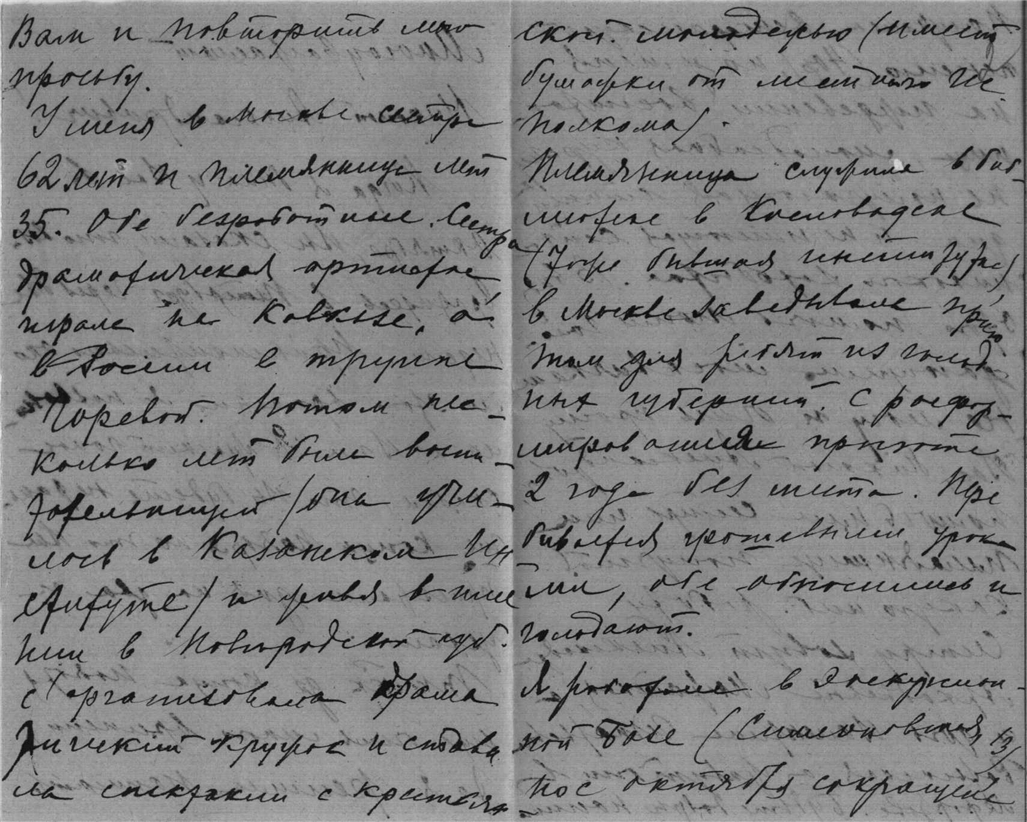 Вам и повторить мою
просьбу.
У меня в Москве сестра
62 лет и племянница лет
35. Обе безработные. Сестра
драматическая артистка
играла на Кавказе, а
в России в труппе
Горевой. Потом нес-
колько лет была воспи-
тательницей (она учи-
лась в Казанском Ин
ституте) и живя в име
нии в Новгородской губ.
с'организовала драма
тический кружок и стави
ла спектакли с крестьян
ской молодежью (имеет
бумажки от местного Ис
полкома).
Племянница служила в биб-
лиотеке в Кисловодске
(тоже бывшая институтка)
в Москве заведывала прию
том для ребят из голод
ных губерний. С расфор-
мированием приюта
2 года без места. Пере
бивается грошевыми урока
ми, обе обносились и
голодают.
Я работаю в Экскурсион-
ной Базе (Симеоновская 13)
но с октября сокращение